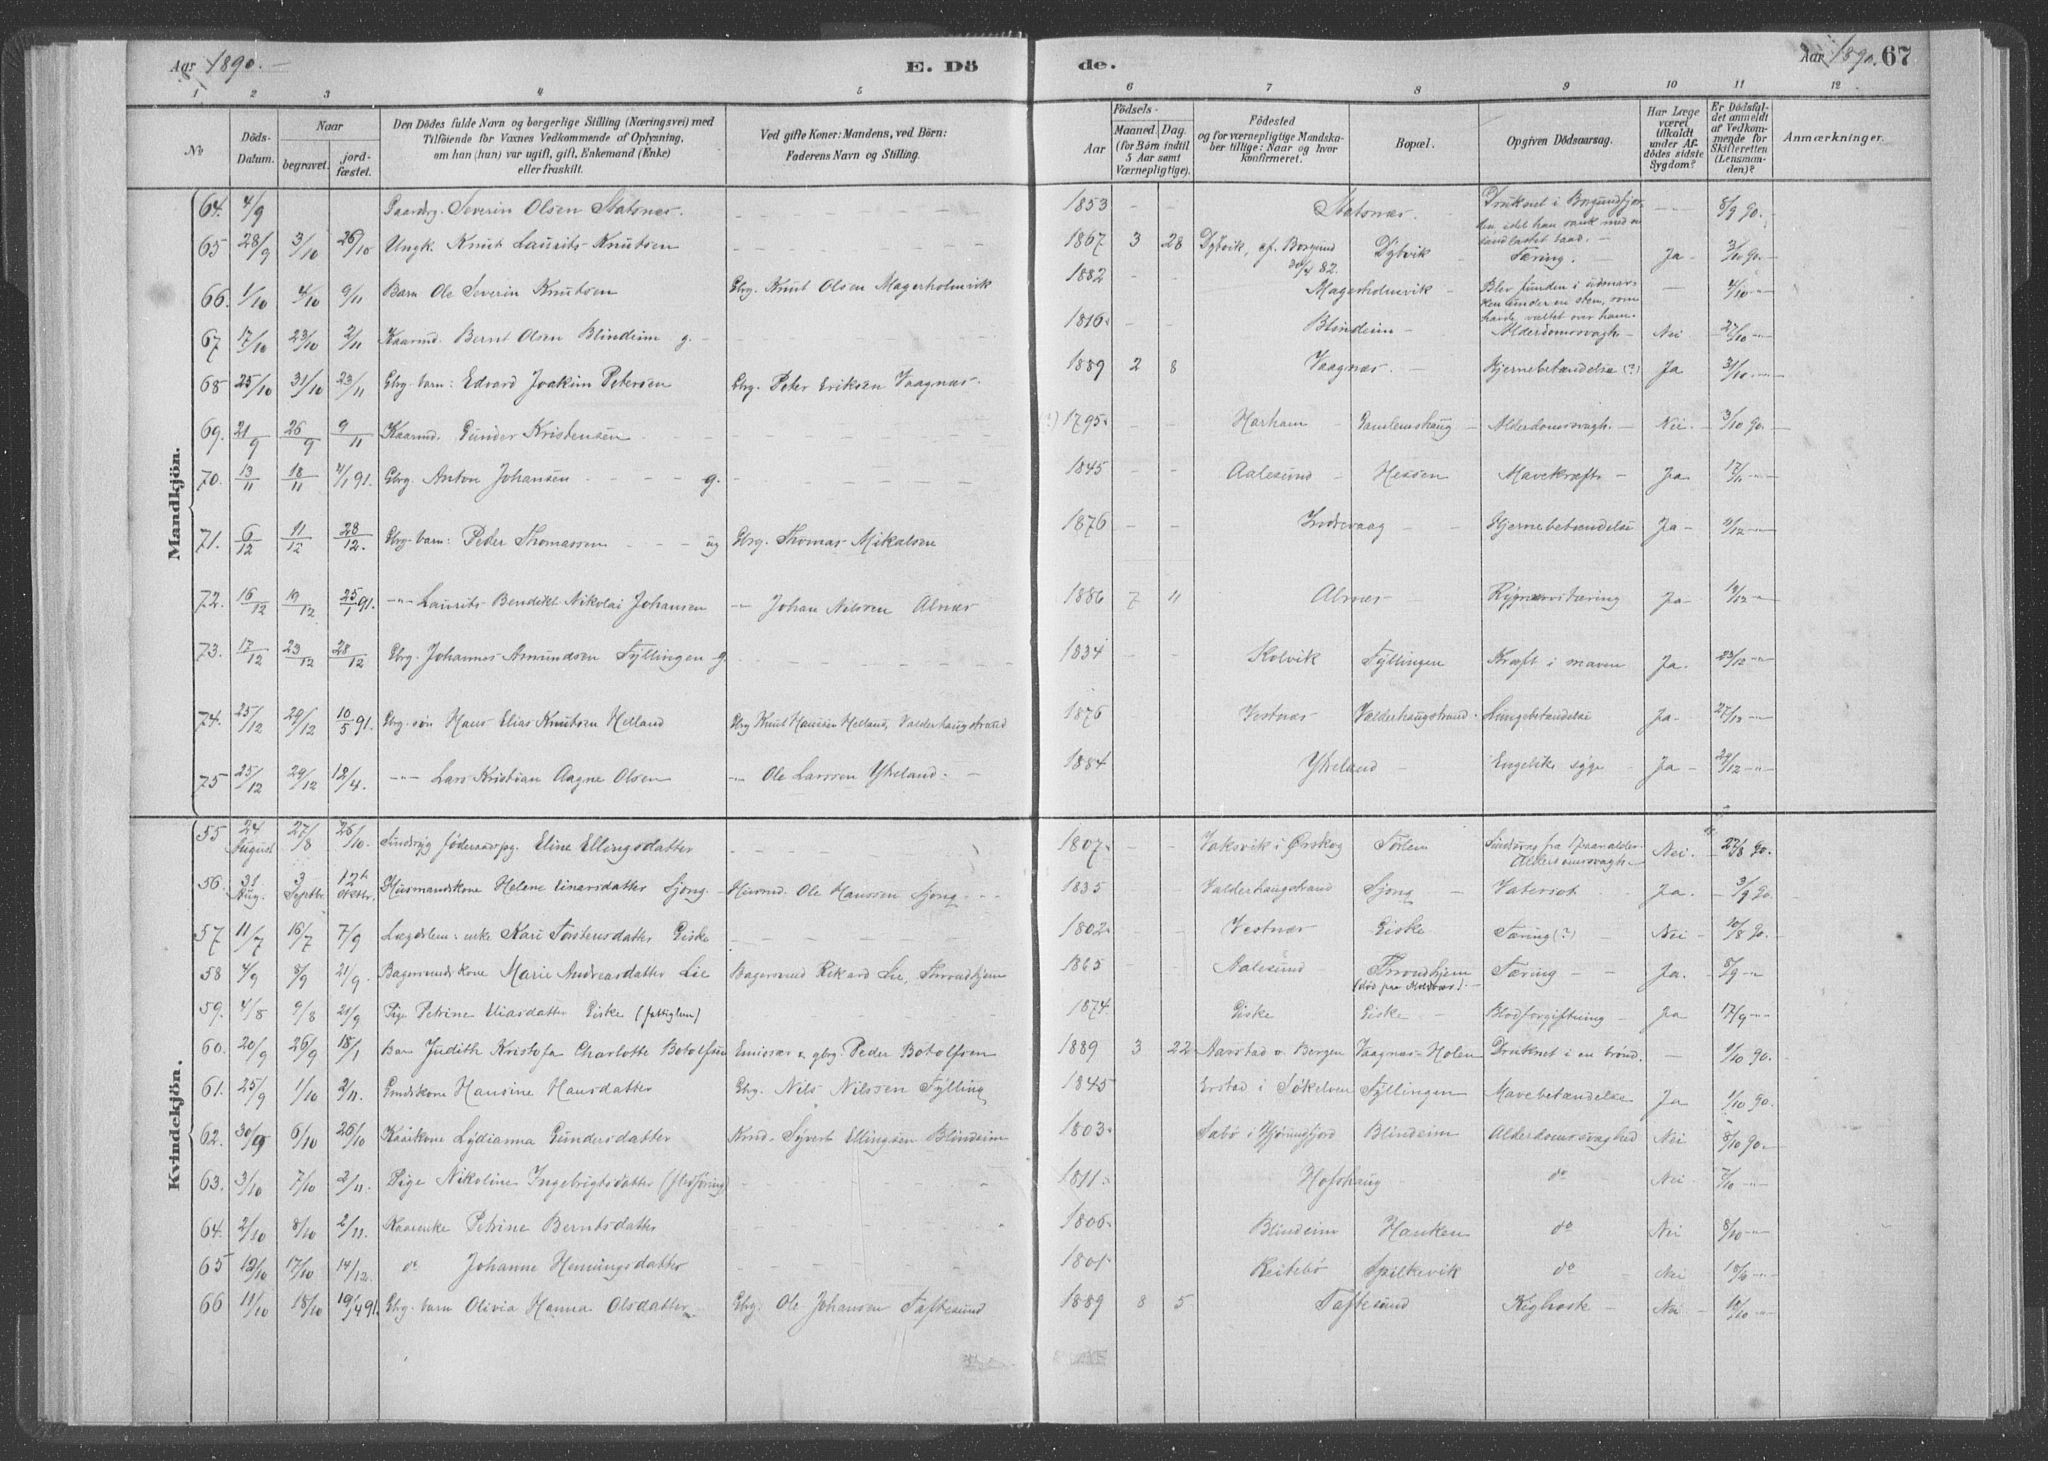 Aar 1890.
E. Dö
de.
Aar 1890. 67
1 2 3 4 5 6 7 8 9 10 11 12
№
Döds-Datum.
Naar
begravet.
jord-fæstet.
Den Dödes fulde Navn og borgerlige Stilling (Næringsvei) med
Tilföiende for Vaxnes Vedkommende af Oplysning,
om han (hun) var ugift, gift, Enkemand (Enke)
eller fraskilt.
Ved gifte Koner: Mandens, ved Börn:
Faderens Navn og Stilling.
Födsels-
Aar
Maaned. (for Börn indtil 5 Aar samt Værnepligtige).
Dag.
Födested
og for værnepligtige Mandska-
ber tillige: Naar og hvor
Konfirmeret.
Bopæl.
Opgiven Dödsaarsag.
Har Læge været tilkaldt under Afdödes sidste Sygdom?
Er Dödsfaldet anmeldt af Vedkommende for Skifteretten (Lensmanden)?
Anmærkninger.
Mandkjön.
64. 4/9 Gaardbrg. Severin Olsen Slatsnæs. 1853 Slatsnæs. Druknet i Borgundfjorden, idet han sank med en sandlastet baad. 8/9 90.
65 28/9 3/10 26/10 Ungk. Knut Laurits Knutsen 1867 3 28 Dybvik, cf. Borgund 82. Dybvik Tæring. Ja 3/10 90.
66. 1/10 4/10 9/11 Barn Ole Severin Knutsen Gbrg. Knut Olsen Magerholmvik 1882 Magerholmvik Blev funden i udmarken under en sten, som havde væltet over ham. 4/10
67 17/10 23/10 2/11 Kaarmd. Bernt Olsen Blindeim g. 1816. Blindeim Alderdomssvagh. Nei 27/10
68 25/10 31/10 23/11 Gbrg. barn: Edvard Joakim Petersen Gbrg. Peter Eriksen Vaagnæs. 1889 2 8 Vaagnæs. Hjernebetændelse (?) Ja 31/10
69. 21/9 26/9 9/11 Kaarmd. Gunder Kristensen (?) 1795. Harham Gamlemshaug Alderdomssvagh. Nei 3/10 90.
70. 13/11 18/11 4/1 91. Gbrg. Anton Johansen g. 1845 Aalesund Hessen Mavekræft Ja 17/11
71. 6/12 11/12 28/12. Gbrg. barn: Peder Thomassen ug Gbrg. Thomas Mikalsen 1876 Indrevaag Hjernebetændelse Ja
72. 16/12 19/12 25/1 91. Laurits Bendikt Nikolai Johansen Johan Nilssen Alnæs 1886 7 11 Alnæs Rygmarvstæring Ja
73. 17/12 23/12 28/12 Gbrg. Johannes Asmundsen Tyllingen g. 1834 Kolvik Tyllingen Kræft i maven Ja 23/12
74. 25/12 29/12 10/5 91. Gbrg. søn Hans Elias Knutsen Helland Gbrg Knut Hanssen Helland, Valderhaugstrand 1876 Vestnæs Valderhaugstrand Lungebetændelse Ja 27/12
75 25/12 29/12 12/4. Lars Kristian Aagne Olsen Ole Larssen Ytreland 1884 Ytreland Engelske syge Ja 29/12
Kvindekjön.
55 24 August 27/8 26/10. Sindssyg føderaadspg. Eline Ellingsdatter 1807. Vaksvik i Ørskog Sindssvag fra Alderdomssvagh. Nei. 27/8 90.
56. 31 Aug. 3 Septbr 12te Oktbr. Husmandskone Helene Einarsdatter Sjong Husmd. Ole Hanssen Sjong 1835 Valderhaugstrand Sjong Vatersot Ja. 3/9 90.
57 11/7 16/7 7/9 Lægdslem: enke Kari Torstensdatter Giske 1802. Vestnæs Giske Tæring (?) Nei 10/8 90.
58 4/9 8/9 21/9. Bagersvendskone Marie Andreasdatter Lie Bagersvend Rikard Lie, Throndhjem 1865 Aalesund Throndhjem Tæring Ja. 8/9
59. 4/8 9/8 21/9 Pige Petrine Eliasdatter Giske (fattiglem) 1874. Giske Giske Blodforgiftning Ja 17/9
60. 20/9 26/9 18/1 Barn Judith Kristofa Charlotte Botolfsen Emissær & gbrg. Peder Botolfsen 1889 3 22 Aarstad v. Bergen Vaagnæs-Holen Druknet i en brønd. 1/10 90.
61. 25/9 1/10 2/11. Gmdskone Hansine Hansdatter Gbrg. Nils Nilssen Tylling 1845 Erstad i Søkelven Tyllingen Mavebetændelse Ja 1/10 90.
62. 30/9 6/10 26/10 Kaarkone Lydianna Gundersdatter Krmd. Syvert Ellingsen Blindeim 1803. Sæbø i Hjørundfjord Blindeim Alderdomssvaghed Nei 8/10 90.
63. 3/10 7/10 2/11. Pige Nikoline Ingebrigtsdatter (flodføring) 1811. Hofshaug do Nei 7/10
64. 2/10 8/10 2/11. Kaarenke Petrine Berntsdatter 1806 Blindeim Hanken do Nei 8/10
65 13/10 17/10 14/12. do Johanne Henningsdatter 1801. Reitebø Spilkevik do Nei
66 11/10 18/10 19/4 91. Gbrg. barn Olivia Hanna Olsdatter Gbrg. Ole Johansen Taftesund 1889 8 5 Taftesund Kighoste Nei